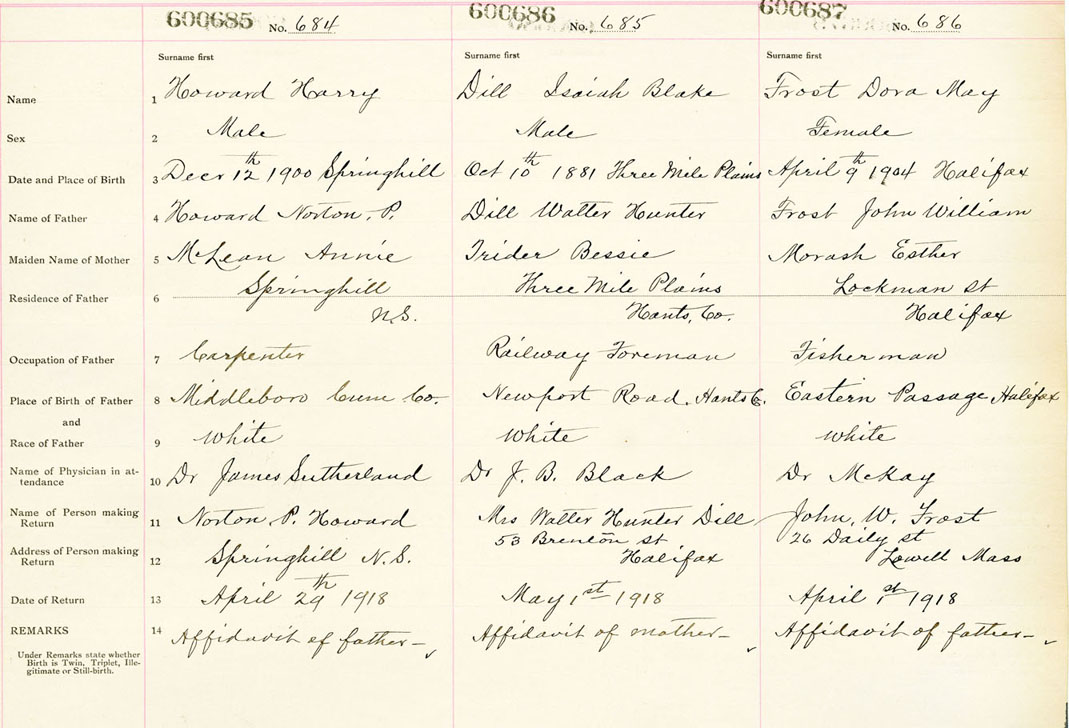 600685 No. 684
600686 No. 685
600687 No. 686
Surname first Surname first Surname first
Name 1 Howard Harry Dill Isaiah Blake Frost Dora May
Sex 2 Male Male Female
Date and Place of Birth 3 Decr 12th 1900 Springhill Oct 10th 1881 Three Mile Plains April 9th 1904 Halifax
Name of Father 4 Howard Norton, P. Dill Walter Hunter Frost John William
Maiden Name of Mother 5 McLean Annie Trider Bessie Morash Esther
Residence of Father 6 Springhill Three Mile Plains Lockman St
N.S. Hants, Co. Halifax
Occupation of Father 7 Carpenter Railway Foreman Fisherman
Place of Birth of Father 8 Middleboro Cum Co. Newport Road, Hants Co. Eastern Passage, Halifax
and
Race of Father 9 White White White
Name of Physician in at-
tendance 10 Dr James Sutherland Dr J. B. Black Dr McKay
Name of Person making
Return 11 Norton, P. Howard Mrs Walter Hunter Dill John, W. Frost
Address of Person making 53 Brenton st 26 Daily st
Return 12 Springhill N.S. Halifax Lowell Mass
Date of Return 13 April 29th 1918 May 1st 1918 April 1st 1918
REMARKS 14 Affidavit of father- Affidavit of mother- Affidavit of father-
Under Remarks state whether
Birth is Twin, Triplet, Ille-
gitimate or Still-birth.